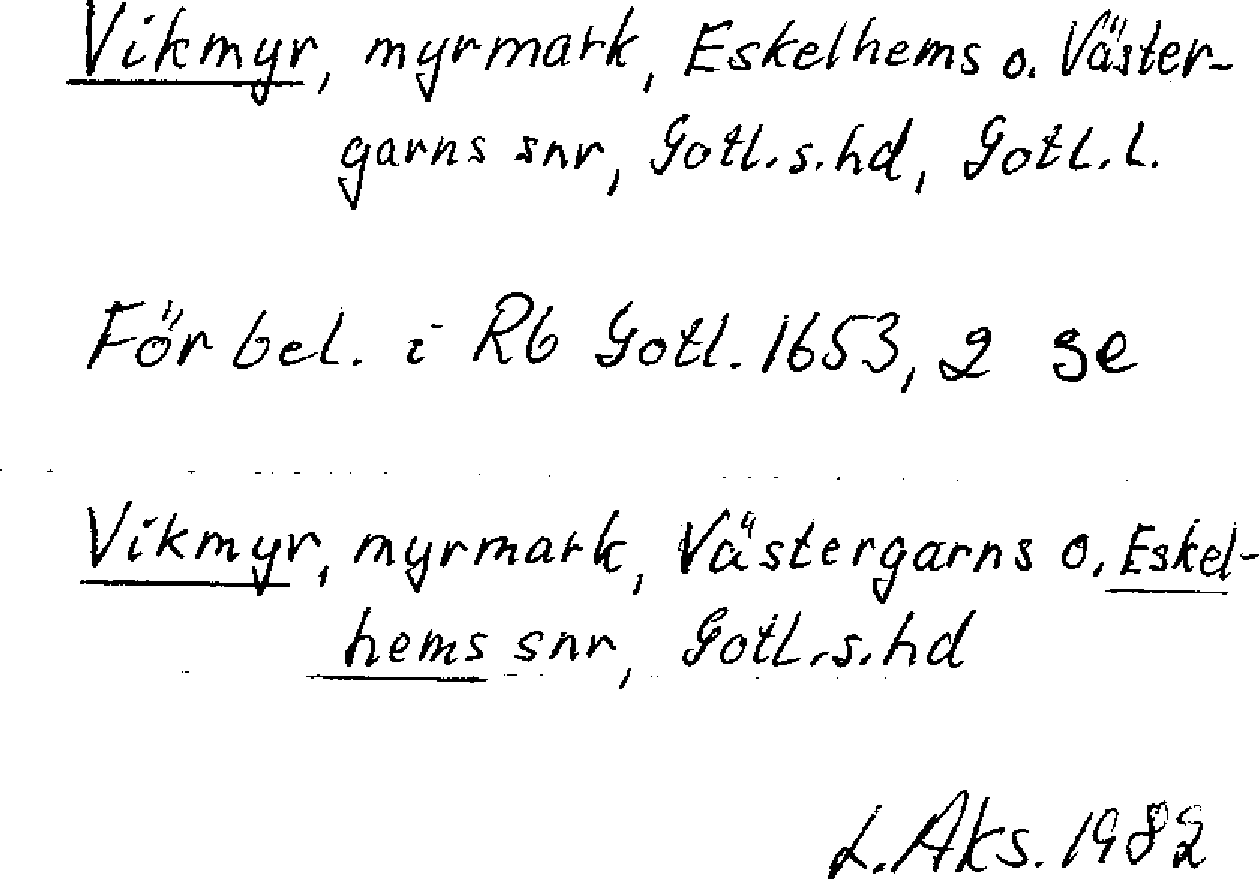 Vikmyr, myrmark, Eskelhems o. Väster-
garns snr, Gotl.s.hd, Gotl.l.
För bel. i Rb Gotl. 1653, 2 se
Vikmyr, myrmark, Västergarns o. Eskel-
hems snr, Gotl.s.hd
L.Aks. 1982